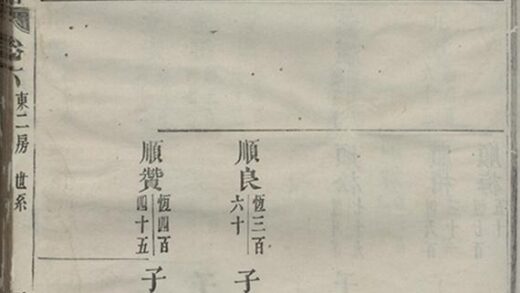 順良 恆三百六十 子
順贊 恆四百四十五 子
卷六 東二房 世系